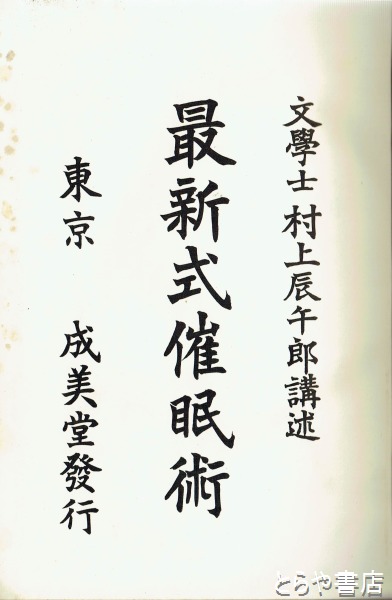 文學士 村上辰午郎講述
最新式催眠術
東京 成美堂發行
とらや書店